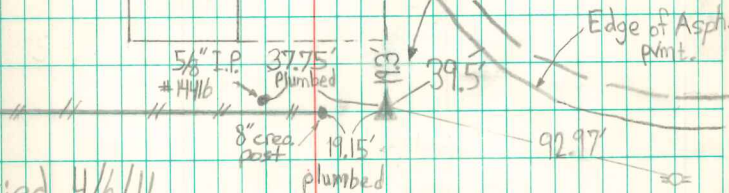 Edge of Asph.
pvmt.
5/8" I.P.
#14416
37.75'
plumbed
19.2'
39.5'
8" creo.
post
19.15'
plumbed
92.97'
4/6/11